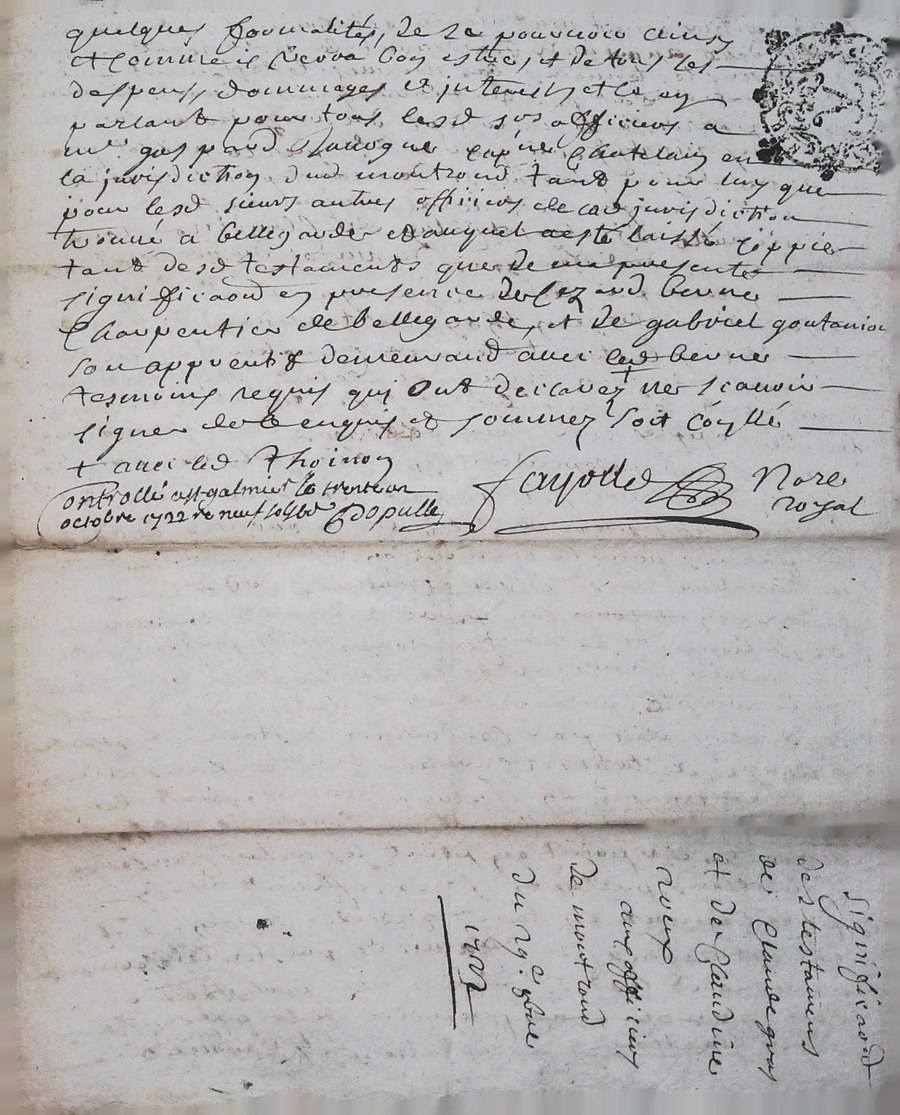 quelques formalités, de se pourvoir ainsy
et comme il verra bon estre, et de tous les
despens, dommages et interests et ce en
parlant pour tous lesd srs officiers a
me gaspard capne Chatelain en
la jurisdiction dud montrond tant pour luy que
pour lesd sieurs autres officiers de lad jurisdiction
trouvé a bellegarde et auquel a esté laissé coppie
tant desd testaments que de ma presente
significaon en presence de berne
Charpentier de bellegarde, et de gabriel
son apprentif demeurand avec led berne
tesmoins requis qui ont declarez ne scavoir
signer de ce enquis et sommez soit
+ avec led Thoinon
Controllé a st galmier le trente un
octobre 1722 re neuf sols
fayolle Nore
royal
significaon
des testamens
de Claude gras
et de Claudine
roux
aux officiers
de montrond
du 29e 8bre
1722